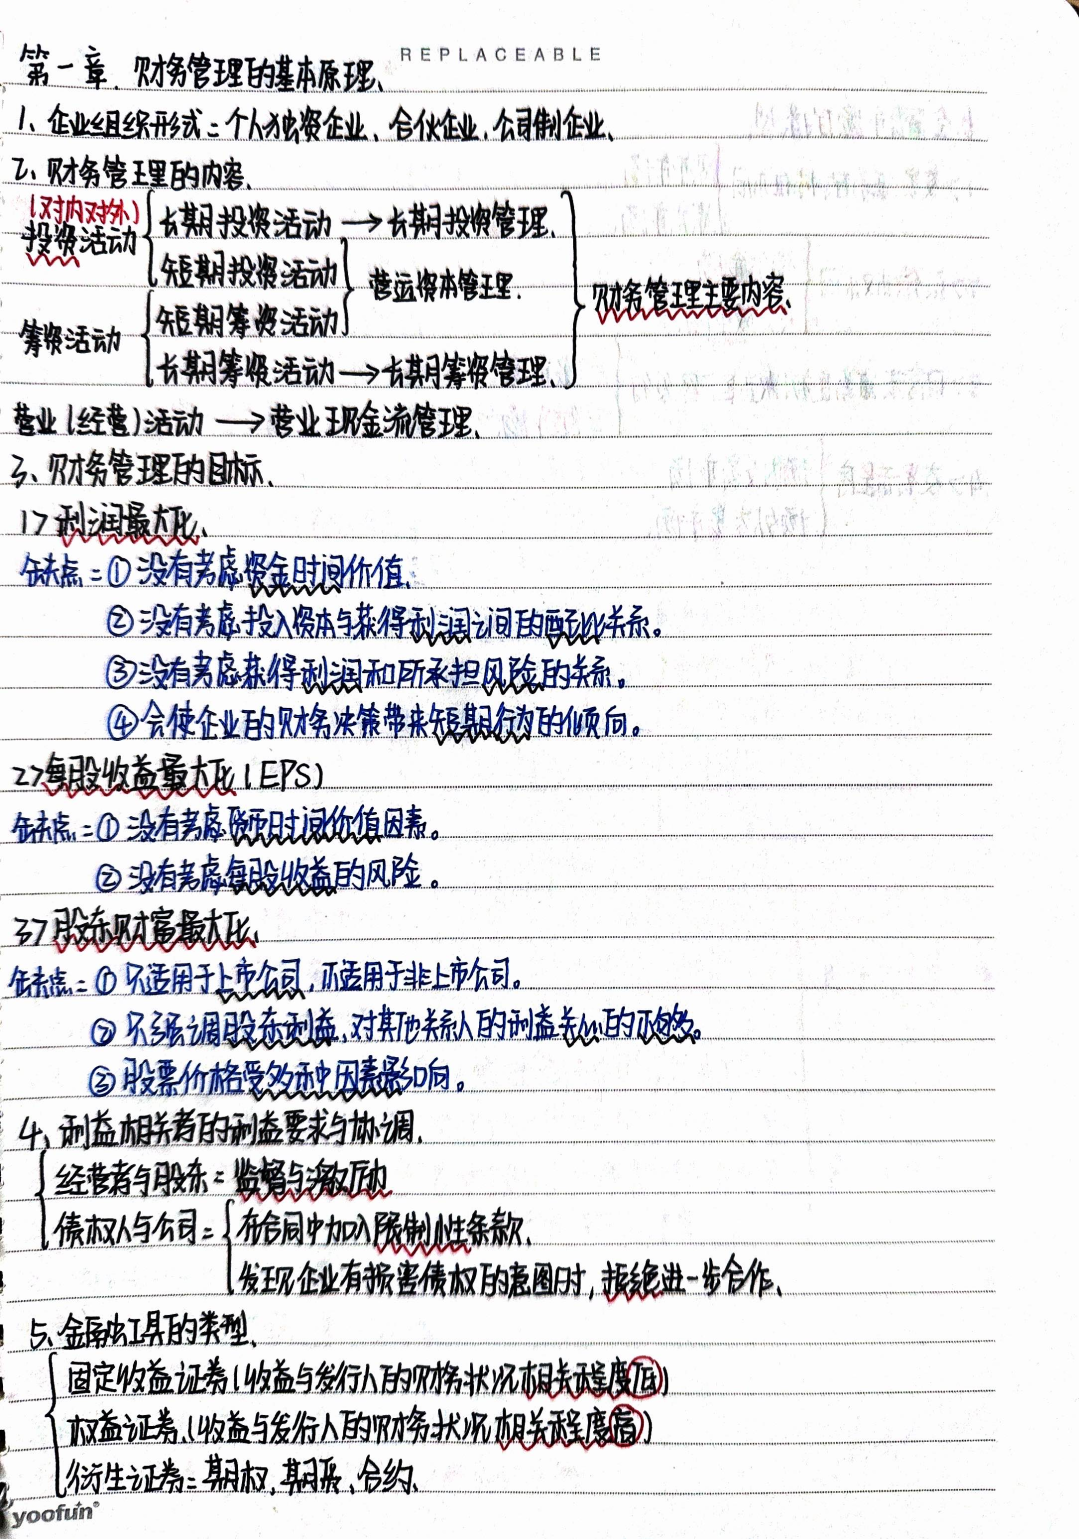 REPLACEABLE
第一章、财务管理的基本原理、
1、企业组织形式:个人独资企业、合伙企业、公司制企业、
2、财务管理的内容、
(对内对外)
投资活动
长期投资活动 → 长期投资管理、
短期投资活动
营运资本管理.
财务管理主要内容、
筹资活动
短期筹资活动
长期筹资活动 → 长期筹资管理、
营业(经营)活动 → 营业现金流管理、
3、财务管理的目标、
1> 利润最大化、
缺点:① 没有考虑资金时间价值、
② 没有考虑投入资本与获得利润之间的配比关系。
③ 没有考虑获得利润和所承担风险的关系。
④ 会使企业的财务决策带来短期行为的倾向。
2> 每股收益最大化(EPS)
缺点:① 没有考虑货币时间价值因素。
② 没有考虑每股收益的风险。
3> 股东财富最大化、
缺点:① 只适用于上市公司,不适用于非上市公司。
② 只强调股东利益,对其他关系人的利益关心的不够。
③ 股票价格受多种因素影响。
4、利益相关者的利益要求与协调、
经营者与股东:监督与激励
债权人与公司:
在合同中加入限制性条款、
发现企业有损害债权的意图时,拒绝进一步合作、
5、金融工具的类型、
固定收益证券(收益与发行人的财务状况相关程度低)
权益证券、(收益与发行人的财务状况相关程度高)
衍生证券:期权、期票、合约、
yoofun®